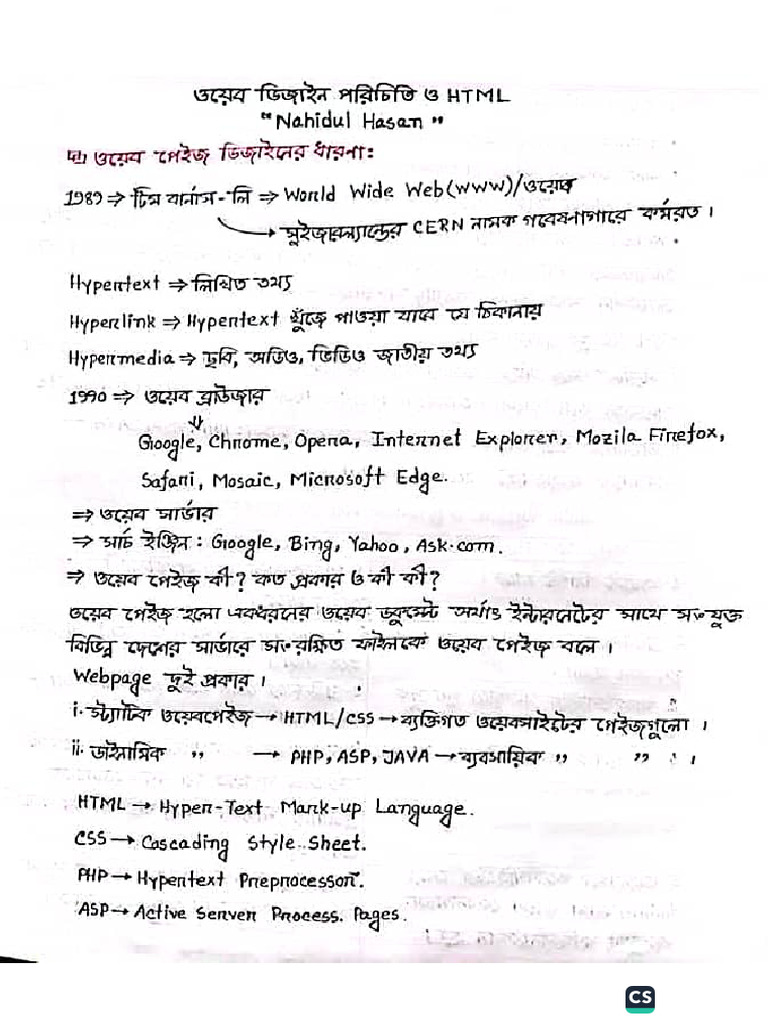 ওয়েব ডিজাইন পরিচিতি ও HTML
"Nahidul Hasan"
ওয়েব পেইজ ডিজাইনের ধারণা:
1989 ⇒ টিম বার্নাস-লি ⇒ World Wide Web(www)/ওয়েব
→ সুইজারল্যান্ডের CERN নামক গবেষণাগারে কর্মরত।
Hypertext ⇒ লিখিত তথ্য
Hyperlink ⇒ Hypertext খুঁজে পাওয়া যাবে যে ঠিকানায়
Hypermedia ⇒ ছবি, অডিও, ভিডিও জাতীয় তথ্য
1990 ⇒ ওয়েব ব্রাউজার
⇓
Google, Chrome, Opera, Internet Explorer, Mozila Firefox,
Safari, Mosaic, Microsoft Edge.
⇒ ওয়েব সার্ভার
⇒ সার্চ ইঞ্জিন : Google, Bing, Yahoo, Ask.com.
⇒ ওয়েব পেইজ কী? কত প্রকার ও কী কী?
ওয়েব পেইজ হলো একধরনের ওয়েব ডকুমেন্ট অর্থাৎ ইন্টারনেটের সাথে সংযুক্ত
বিভিন্ন দেশের সার্ভারে সংরক্ষিত ফাইলকে ওয়েব পেইজ বলে।
Webpage দুই প্রকার।
i. স্ট্যাটিক ওয়েবপেইজ → HTML/CSS → ব্যক্তিগত ওয়েবসাইটের পেইজগুলো।
ii. ডাইনামিক " → PHP, ASP, JAVA → ব্যবসায়িক " " ।
HTML → Hyper-Text Mark-up Language.
CSS → Cascading Style Sheet.
PHP → Hypertext Preprocessor.
ASP → Active Server Process Pages.
CS